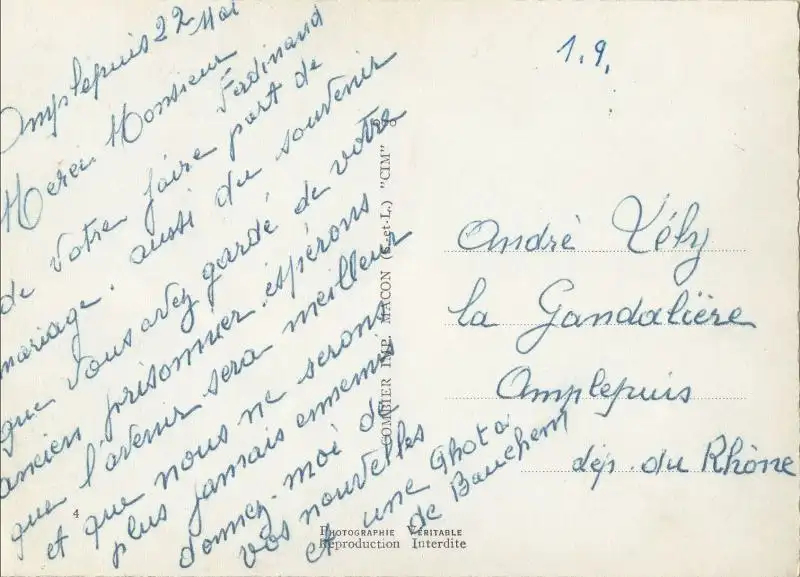 Amplepuis 22 Mai
Merci Monsieur Ferdinand
de votre faire part de
mariage. aussi du souvenir
que vous avez gardé, de votre
ancien prisonnier. espérons
que l'avenir sera meilleur
et que nous ne serons
plus jamais ennemis
donnez-moi de
vos nouvelles
et une Photo
de Bauchem
4
COMBIER IMP. MACON (S.-et-L.) "CIM"
PHOTOGRAPHIE VÉRITABLE
Reproduction Interdite
1.9.
André
la Gandalière
Amplepuis
dép. du Rhône